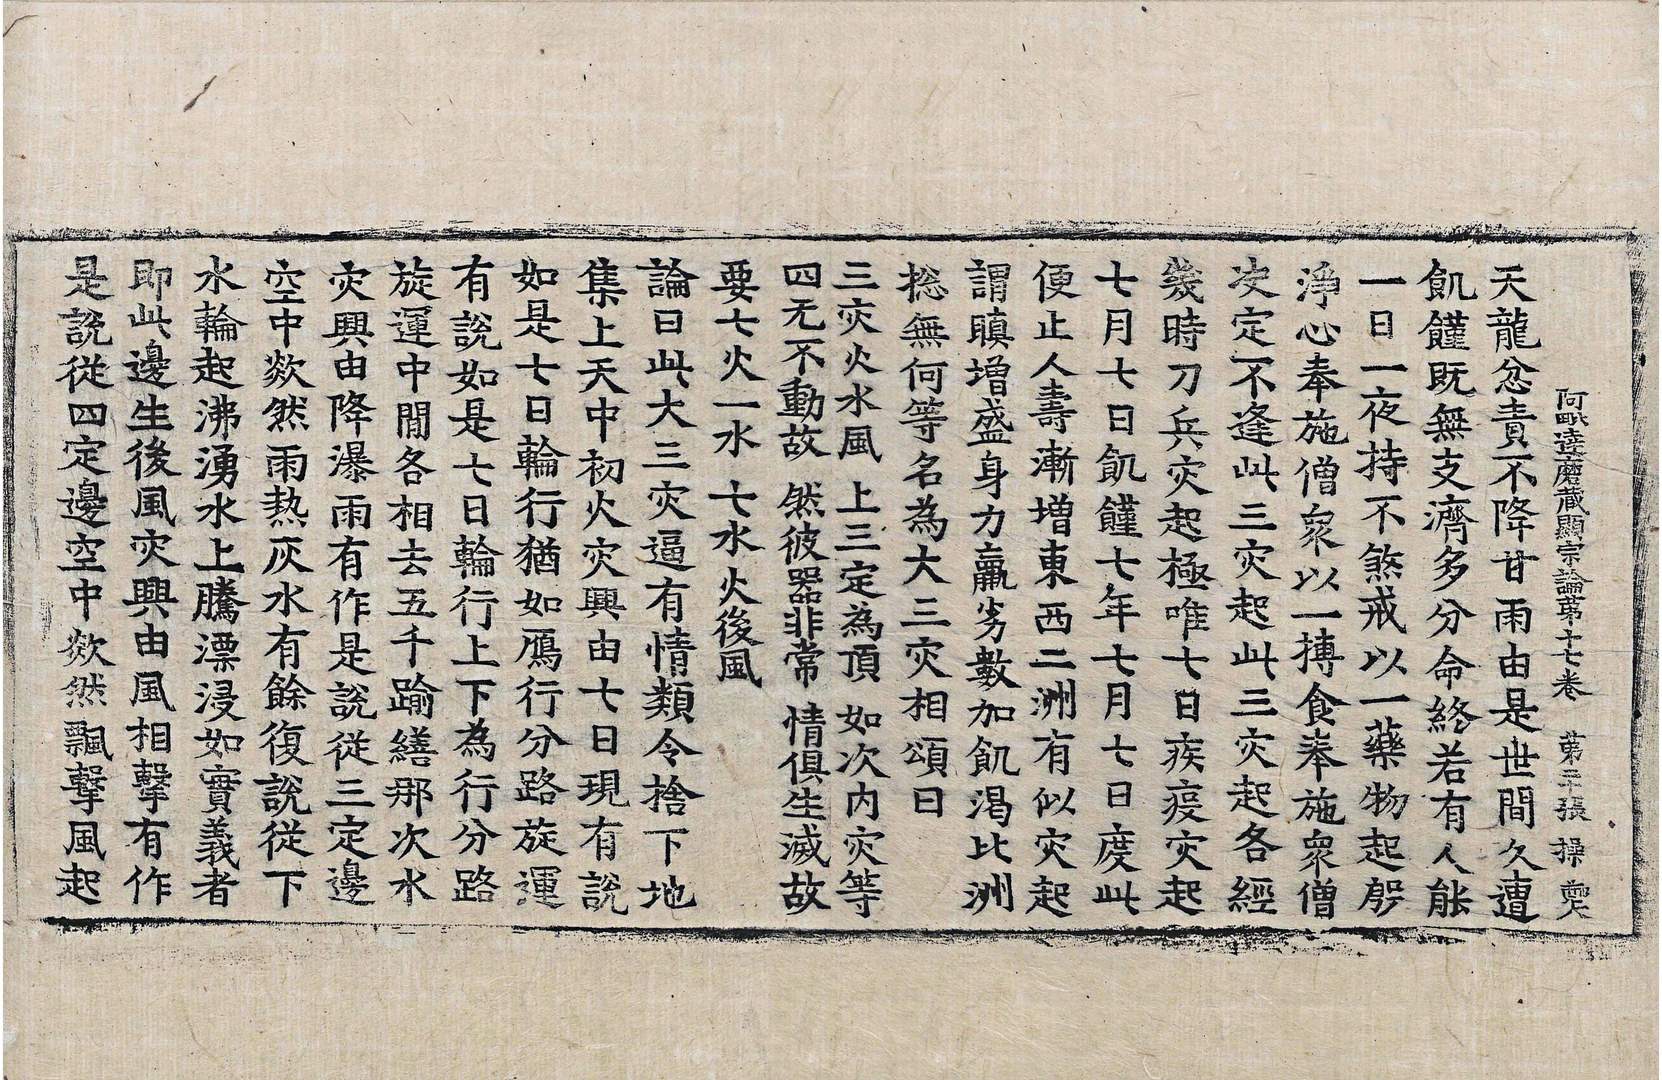 阿毗達磨藏顯宗論第十七卷 第二十張 操
天龍忿責不降甘雨由是世間久遭
飢饉既無支濟多分命終若有人能
一日一夜持不煞戒以一藥物起殷
淨心奉施僧衆以一摶食奉施衆僧
决定不逢此三灾起此三灾起各經
幾時刀兵灾起極唯七日疾疫灾起
七月七日飢饉七年七月七日度此
便止人壽漸增東西二洲有似灾起
謂瞋增盛身力羸劣數加飢渴北洲
揔無何等名為大三灾相頌曰
三灾火水風 上三定為頂 如次内灾等
四无不動故 然彼器非常 情俱生滅故
要七火一水 七水火後風
論曰此大三灾逼有情類令捨下地
集上天中初火灾興由七日現有說
如是七日輪行猶如鴈行分路旋運
有說如是七日輪行上下為行分路
旋運中閒各相去五千踰繕那次水
灾興由降瀑雨有作是說從三定邊
空中欻然雨熱灰水有餘復說從下
水輪起沸湧水上騰漂浸如實義者
即此邊生後風灾興由風相擊有作
是說從四定邊空中欻然飄擊風起